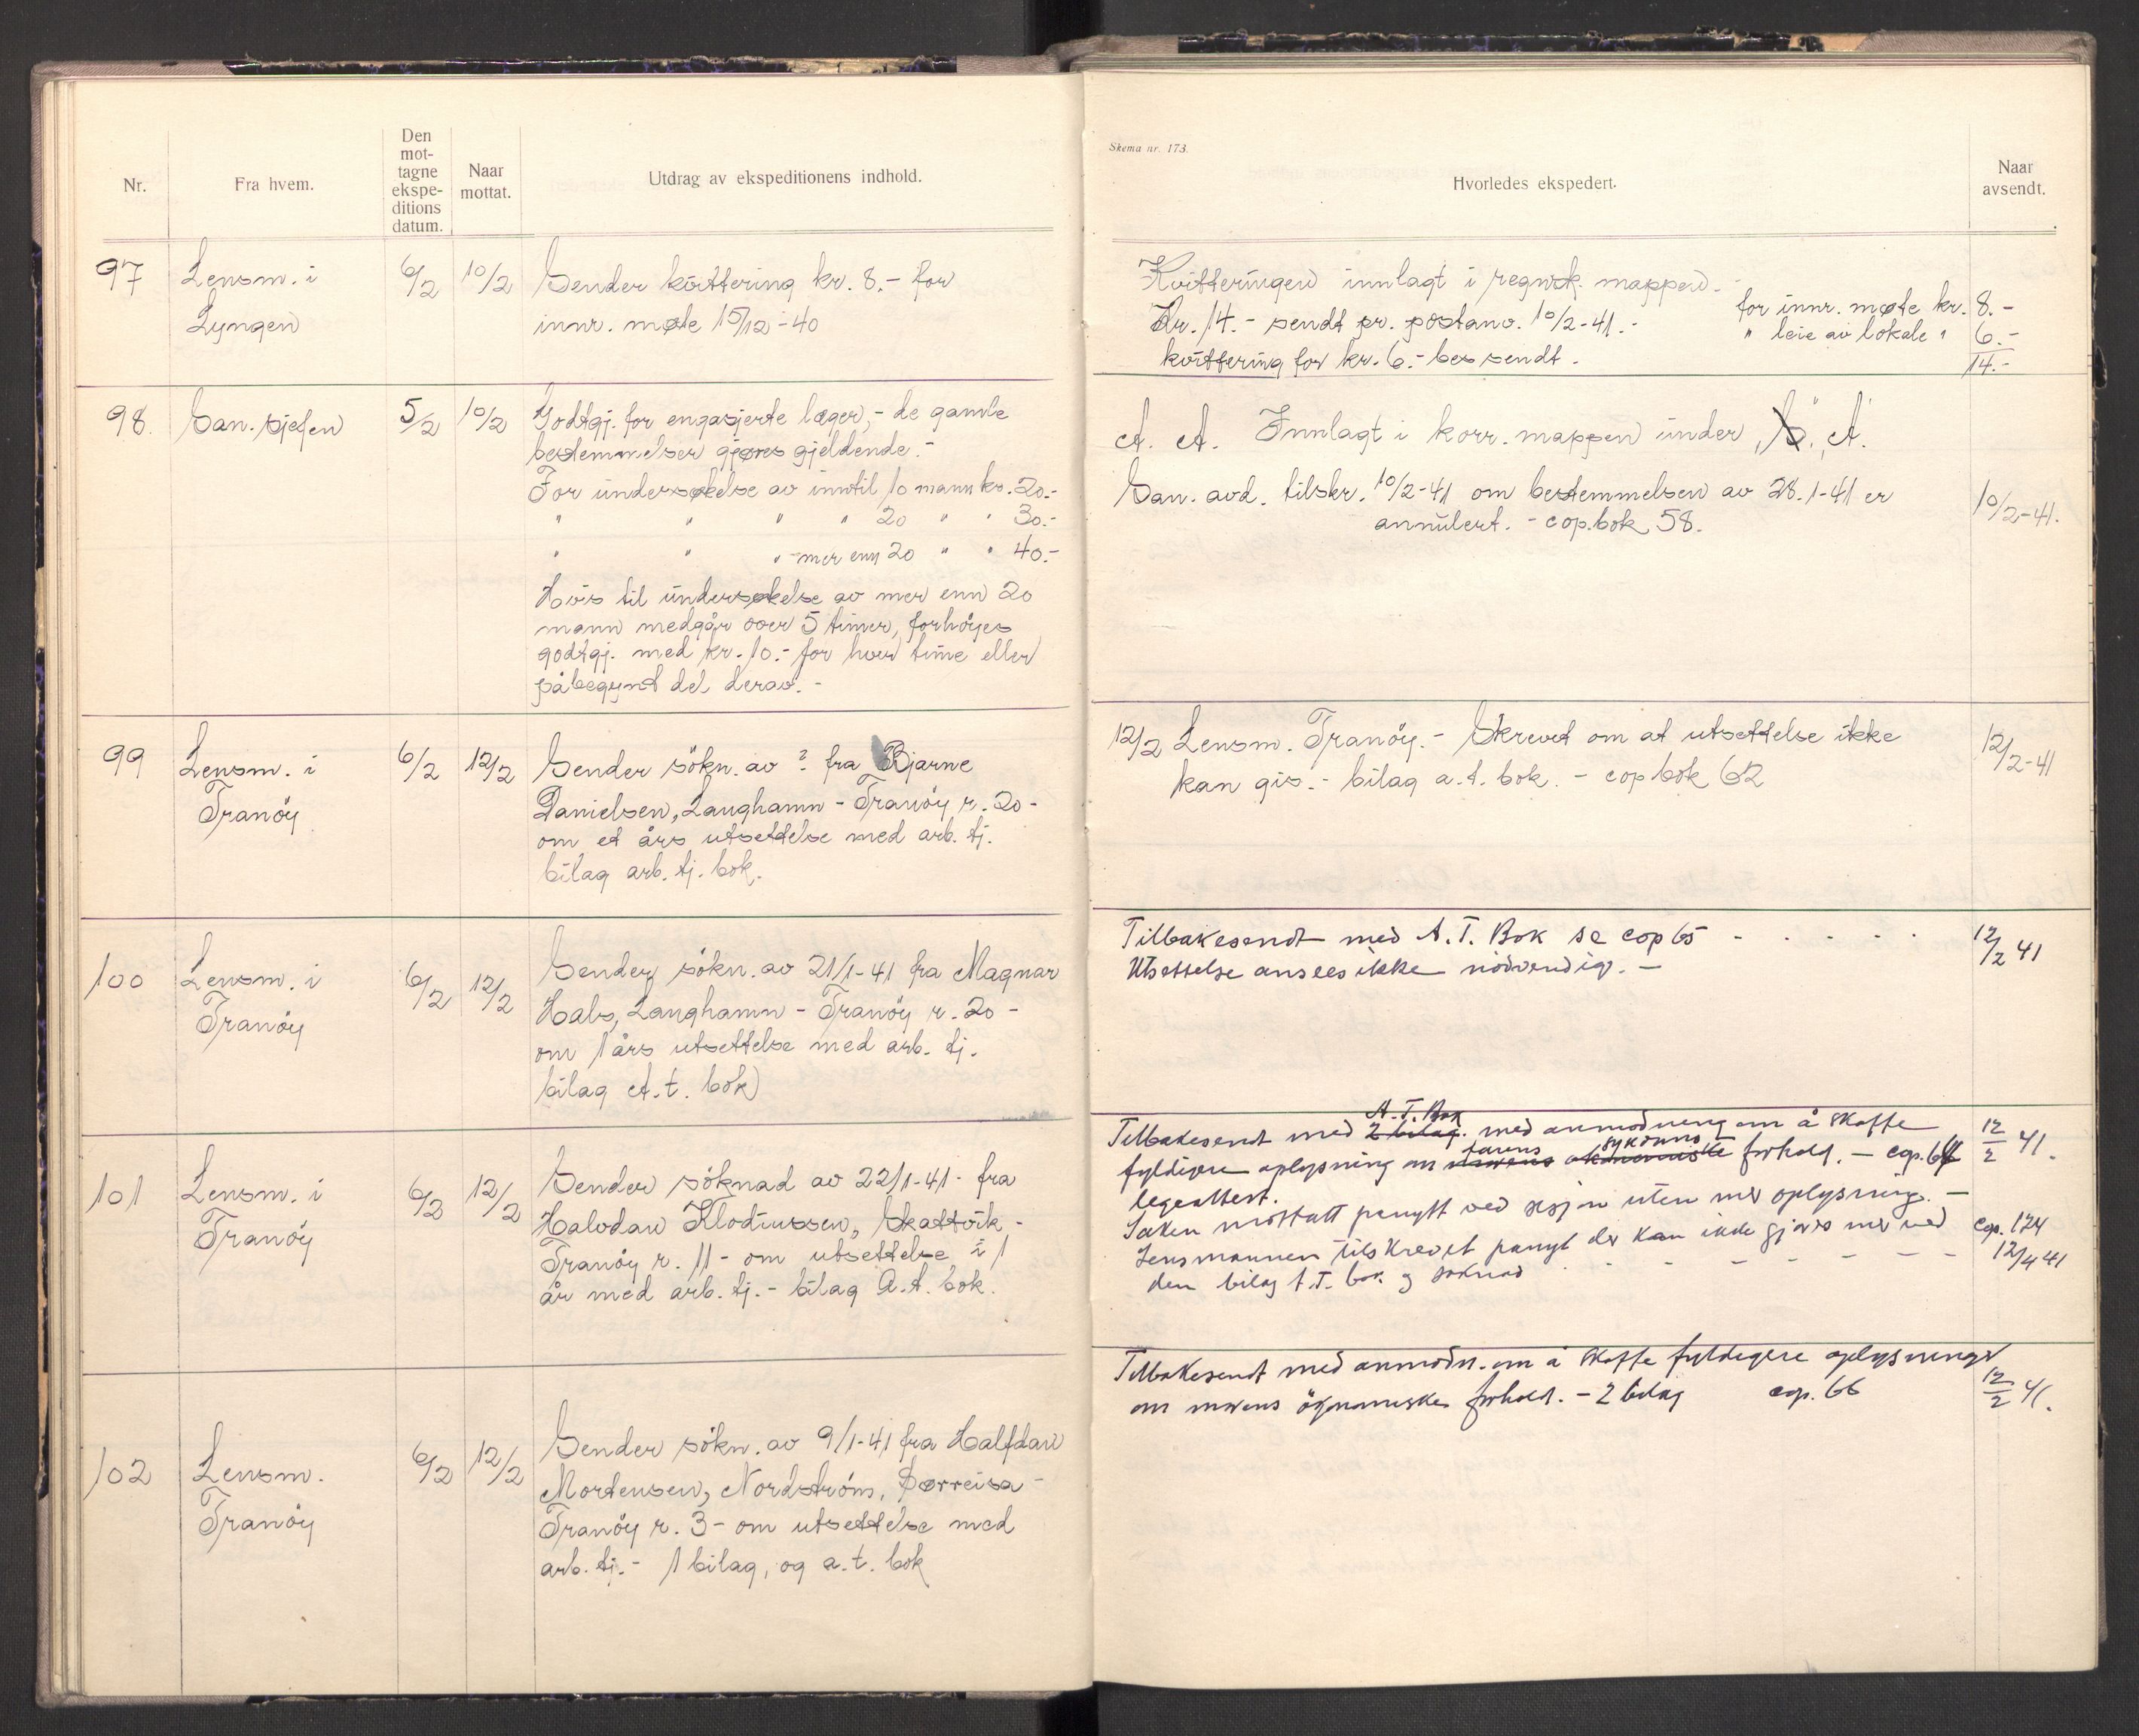 Nr.
Fra hvem.
Den
mot-
tagne
ekspe-
ditions
datum.
Naar
mottat.
Utdrag av ekspeditionens indhold.
97
Lensm. i
Lyngen
6/2
10/2
Sender kvittering kr. 8.- for
innr. møte 15/12-40
98.
San. sjefen
5/2
10/2
Godtgj. for engasjerte læger, - de gamle
bestemmelser gjøres gjeldende. -
For undersøkelse av inntil 10 mann kr. 20.-
" " " " 20 " " 30.-
" " " mer enn 20 " " 40.-
Hvis til undersøkelse av mer enn 20
mann medgår over 5 timer, forhöyes
godtgj. med kr. 10.- for hver time eller
påbegynt del derav. -
99
Lensm. i
Tranöy
6/2
12/2
Sender sökn. av ? fra Bjarne
Danielsen, Laughamn - Tranöy r. 20 -
om et års utsettelse med arb. tj.
bilag arb. tj. bok.
100
Lensm. i
Tranöy
6/2
12/2
Sender sökn. av 21/1-41 fra Magnar
Hals, Laughamn - Tranöy r. 20 -
om 1 års utsettelse med arb. tj.
bilag A. t. bok)
101
Lensm. i
Tranöy
6/2
12/2
Sender söknad av 22/1-41 - fra
Halvdan Klodiussen, Skattvik -
Tranöy r. 11 - om utsettelse i 1
år med arb. tj. - bilag A. t. bok.
102
Lensm.
Tranöy
6/2
12/2
Sender sökn. av 9/1-41 fra Halfdan
Mortensen, Nordström, Sørreisa -
Tranöy r. 3 - om utsettelse med
arb. tj. - 1 bilag, og a. t. bok
Skema nr. 173.
Hvorledes ekspedert.
Naar
avsendt.
Kvitteringen innlagt i regnsk. mappen. -
for innr. møte kr. 8.-
Kr. 14.- sendt pr. postanv. 10/2-41. -
" leie av lokale " 6.-
kvittering for kr. 6.- bes sendt.
14.-
A. A. Innlagt i korr. mappen under "S" "A"
San. avd. tilskr. 10/2-41 om bestemmelsen av 28.1-41 er
annulert. - cop.bok 58.
10/2-41.
12/2 Lensm. Tranöy. - Skrevet om at utsettelse ikke
kan gis. - bilag a. t. bok. - cop bok 62
12/2-41
Tilbakesendt med A. T. Bok se cop 65 - - - - -
Utsettelse ansees ikke nödvendig. -
12/2 41
A. T. Bok
Tilbakesendt med 2 bilag. med anmodning om å skaffe
farens sykdoms
fyldigere oplysning om morens økonomiske forhold. - cop. 64
12/2 41.
legeattest.
Saken mottatt panytt ved sesjon uten mer oplysning. -
Lensmannen tilskrevet panyt der kan ikke gjöres mer ved
cop. 124
den bilag A.T. bok og söknad - - - - - -
12/4 41
Tilbakesendt med anmodn. om å skaffe fyldigere oplysninger
om morens ökonomiske forhold. - 2 bilag cop. 66
12/2 41.